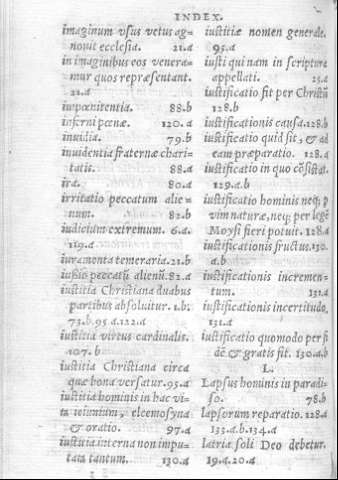 INDEX.
imaginum vsus vetus ag-
nouit ecclesia. 21.a
in imaginibus eos venera-
mur quos repræsentant.
21.a
impœnitentia. 88.b
inferni pœnæ. 120.a
inuidia. 79.b
inuidentia fraternæ chari-
tatis. 88.a
ira. 80.a
irritatio peccatum alie-
num. 82.b
iudicium extremum. 6.a.
119.a
iuramenta temeraria. 21.b
iussio peccatū alienū. 82.a
iustitia Christiana duabus
partibus absoluitur. 1.b.
73.b. 95.a. 122.a
iustitia virtus cardinalis.
107.b
iustitia Christiana circa
quæ bona versatur. 95.a
iustitia hominis in hac vi-
ta ieiunium, eleemosyna
& oratio. 97.a
iustitia interna non impu-
tata tantum. 130.a
iustitiæ nomen generale.
95.a
iusti qui nam in scriptura
appellati. 25.a
iustificatio fit per Christū
128.b
iustificationis causa. 128.b
iustificatio quid sit, & ad
eam præparatio. 128.a
iustificatio in quo cōsistat.
129.a.b
iustificatio hominis neq; p
vim naturæ, neq; per legē
Moysi fieri potuit. 128.a
iustificationis fructus. 130.
a.b
iustificationis incremen-
tum. 131.a
iustificationis incertitudo.
131.a
iustificatio quomodo per fi
dē & gratis fit. 130.a.b
L.
Lapsus hominis in paradi-
so. 78.b
lapsorum reparatio. 128.a
133.a.b. 134.a
latria soli Deo debetur.
19.a. 20.a